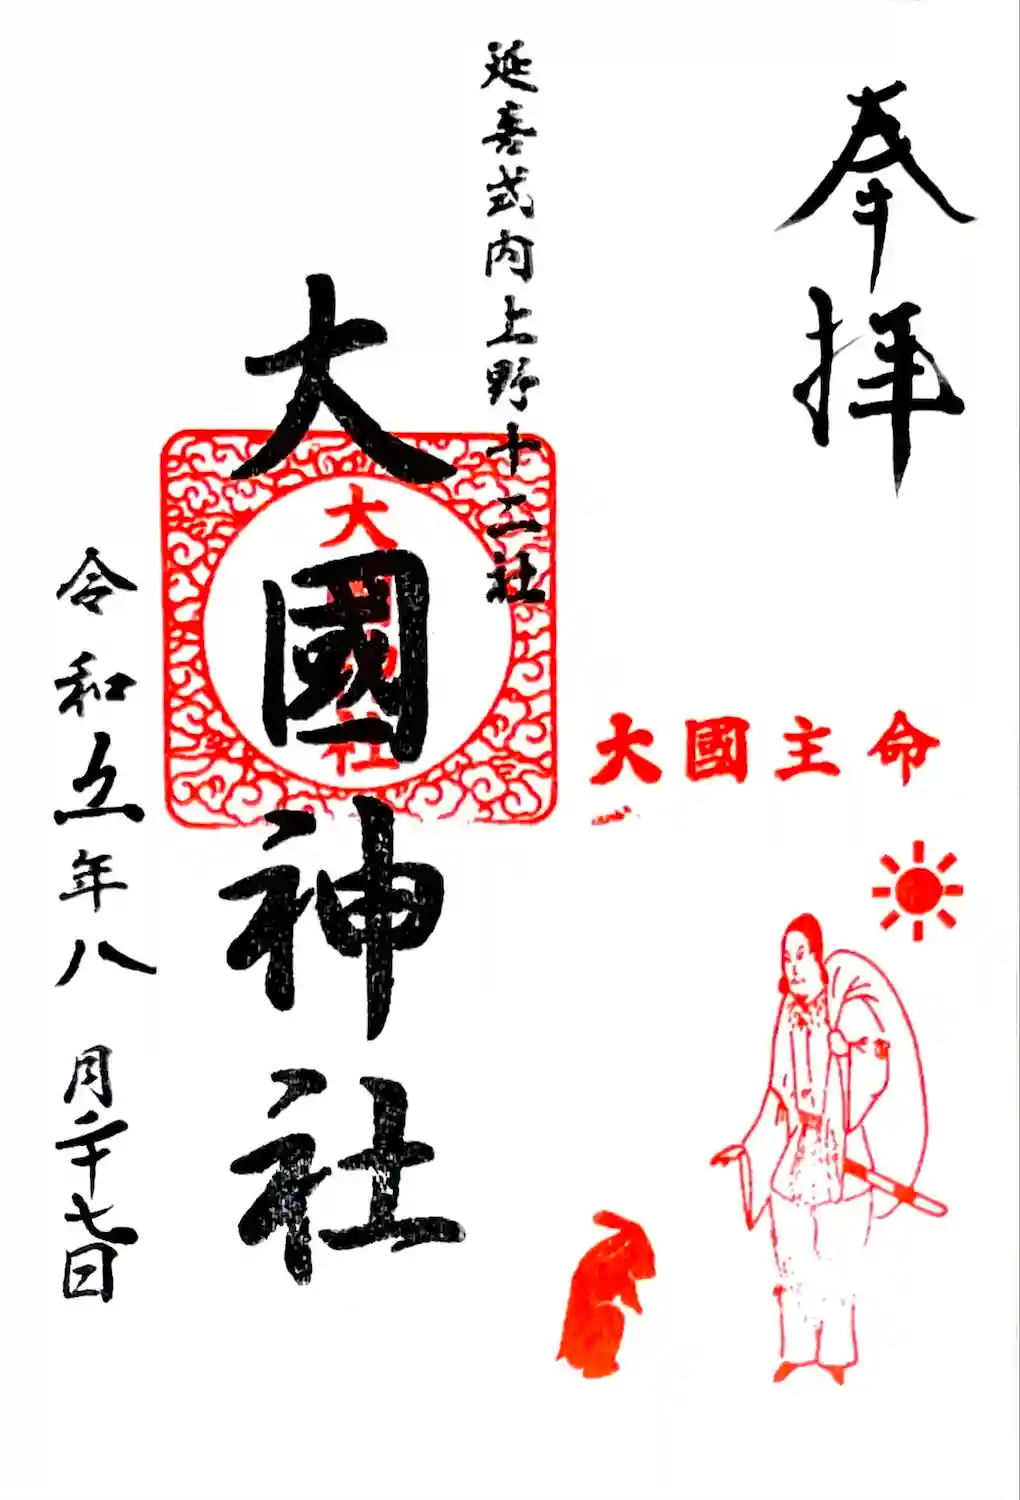 奉拝
延喜式内上野十二社
大國神社
令和五年八月二十七日
大國主命